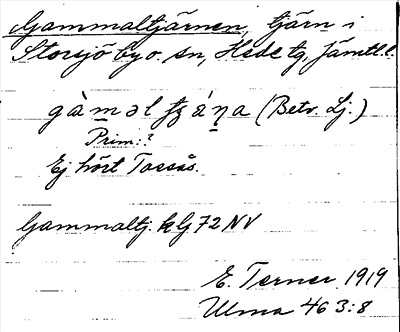 Gammaltjärnen, tjärn i
Storsjö by o. sn, Hede tg, Jämtl. l.
(Betr. Lj.)
Prim.?
Ej hört Tossås.
Gammaltj. kbl 72 NV
E. Terner 1919
Ulma 463:8